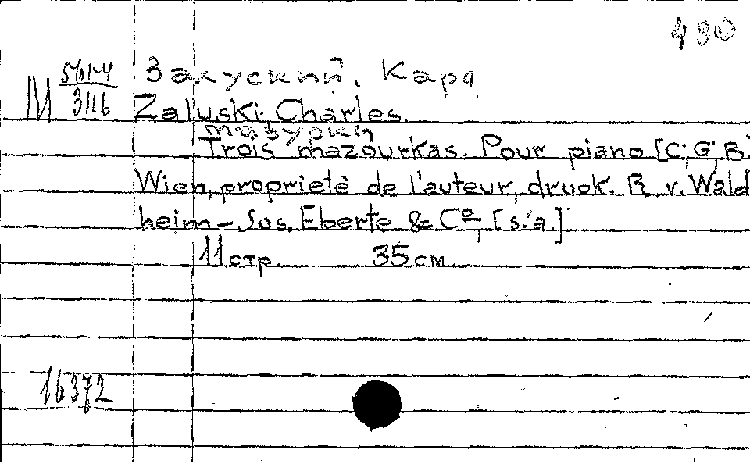 490
Залуский, Карл
М 5614/3116
Zaluski, Charles.
мазурки
Trois mazourkas. Pour piano [C; G; B.
Wien, proprietè de l'auteur, druck. R. v. Wald
heim – Jos. Eberle & Cº, [s. a.]
11 стр. 35 см.
16372